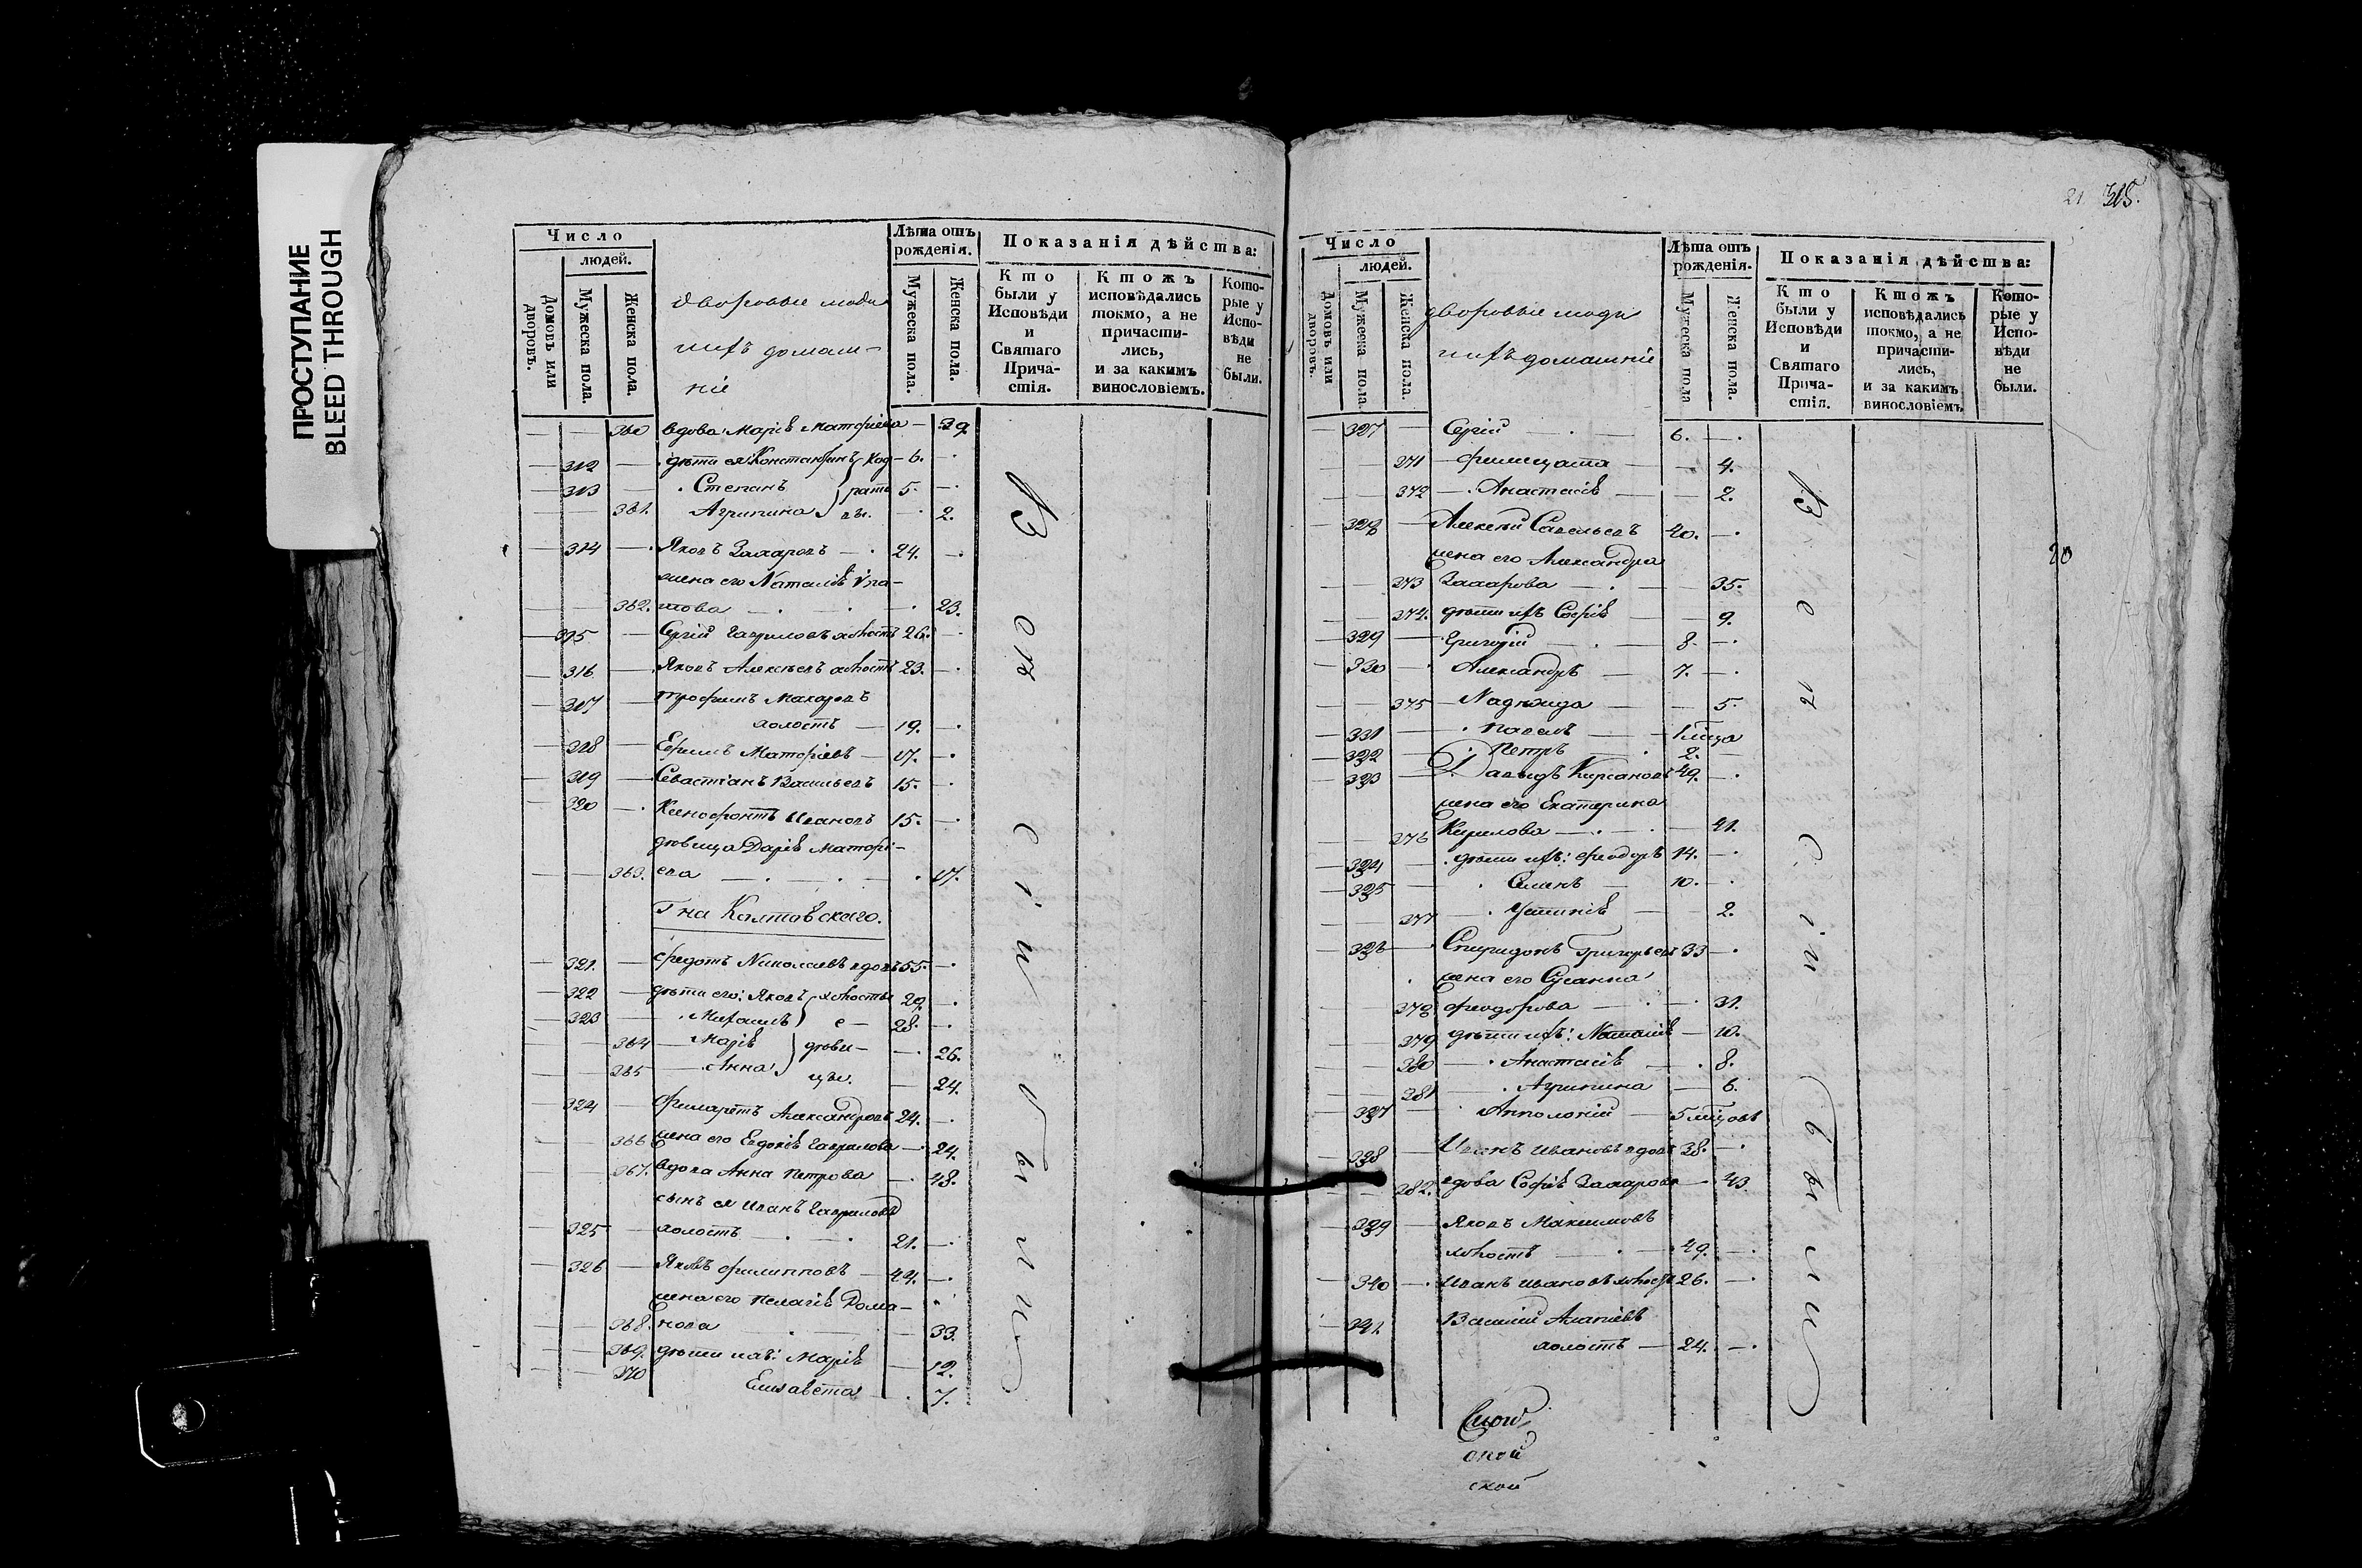 ПРОСТУПАНИЕ
BLEED THROUGH
Число
людей.
Домовъ или дворовъ.
Мужеска пола.
Женска пола.
Дворовые люди
ихъ домаш-
ніе
Лѣта отъ рожденія.
Мужеска пола.
Женска пола.
Показанія дѣйства:
Кто были у Исповѣди и Святаго Прича-стія.
Ктожъ исповѣдались токмо, а не причасти-лись, и за какимъ винословіемъ.
Кото-рые у Испо-вѣди не были.
360 вдова Марія Матфіева 39
312 дѣти ея Константинъ 6.
313 Степанъ 5.
361. Агрипина 2.
314 Яковъ Захаровъ 24.
жена его Наталія
362. 23.
315 Сергій Гавриловъ холостъ 26.
316 Яковъ Алексѣевъ холостъ 23.
317 Трофимъ Макаровъ
холостъ 19.
318 Ефимъ Матфіевъ 17.
319 Севастіанъ Васильевъ 15.
320 Ксенофонтъ Ивановъ 15.
дѣвица Дарія Матфі-
363. ева 17.
Гна Колтовскаго.
321. Федотъ Николаевъ вдовъ 55.
322 дѣти его: Яковъ холосты 29.
323 Михаилъ е 28.
364 Марія дѣви- 26.
365 Анна цы. 24.
324 Филаретъ Александровъ 24.
366 жена его Евдокія Гаврилова 24.
367. вдова Анна Петрова 48.
сынъ ея Иванъ Гавриловъ
325 холостъ 21.
326 Яковъ Филипповъ 44.
жена его Пелагія Рома-
368. нова 33.
369. дѣти ихъ: Марія 12.
370 Елисавета 7.
Всѣ сіи были
21. 315.
Число
людей.
Домовъ или дворовъ.
Мужеска пола.
Женска пола.
дворовые люди
ихъ домашніе
Лѣта отъ рожденія.
Мужеска пола
Женска пола.
Показанія дѣйства:
Кто были у Исповѣди и Святаго Прича-стія.
Ктожъ исповѣдались токмо, а не причасти-лись, и за какимъ винословіемъ
Кото-рые у Испо-вѣди не были.
327 Сергій 6.
371 Филицата 4.
372 Анастасія 2.
328 Алексѣй Савельевъ 40.
жена его Александра
373 Захарова 35.
374. дѣти ихъ Софія 9.
329 Григорій 8.
330 Александръ 7.
375 Надежда 5.
331 Павелъ
332 Петръ 2.
333 Давыдъ Кирсановъ 49.
жена его Екатерина
376 Кирилова 41.
334 дѣти ихъ: Феодоръ 14.
335 Семенъ 10.
377 Устинія 2.
336 Спиридонъ Григорьевъ 33
жена его Сусанна
378 Феодорова 31.
379 дѣти ихъ: Наталія 10.
380 Анастасія 8.
381 Агрипина 6.
337 Апполоній 5 мѣцовъ
338 Иванъ Ивановъ вдовъ 38.
382. вдова Софія Захарова 43.
339 Яковъ Максимовъ
холостъ 49.
340 Иванъ Ивановъ холостъ 26.
341. Василій
холостъ 24.
Всѣ сіи были
20
ской